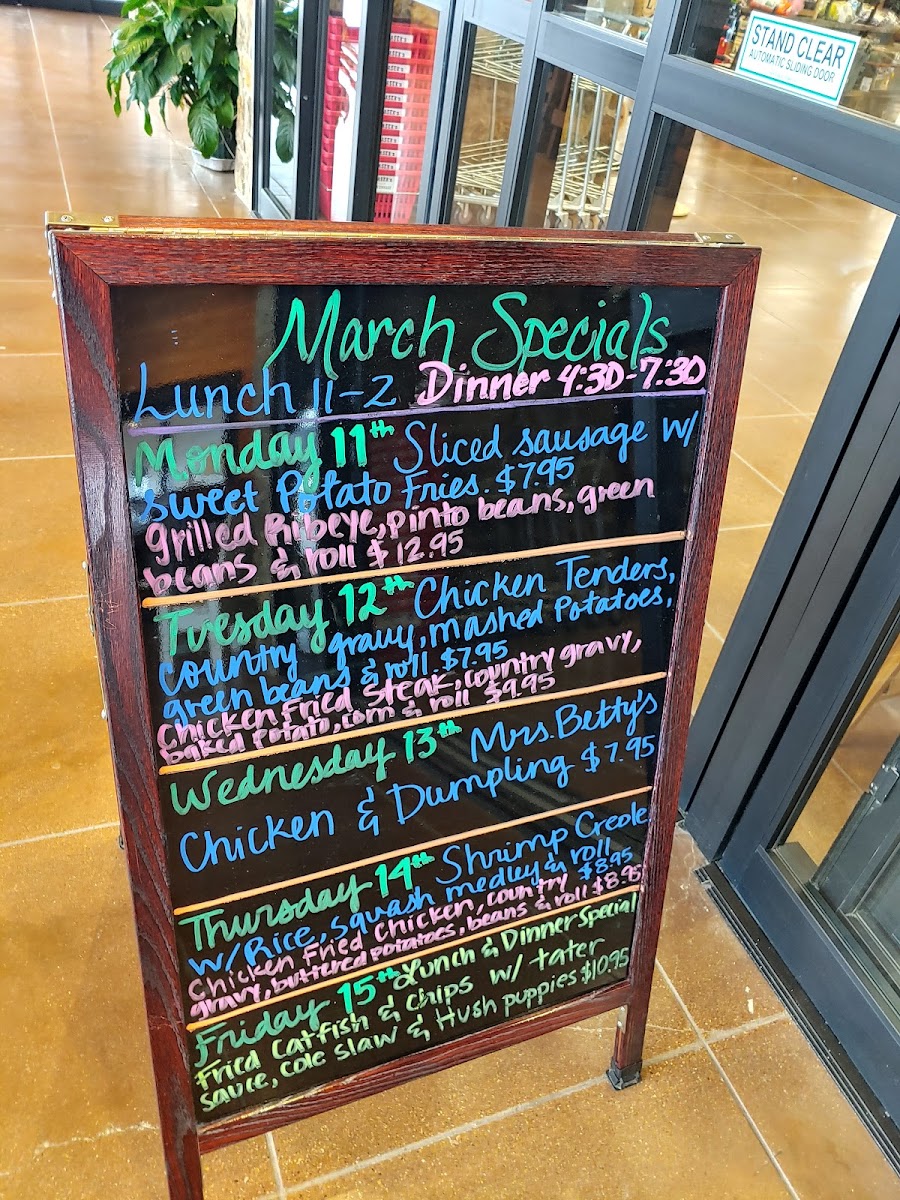 STAND CLEAR
AUTOMATIC SLIDING DOOR
March Specials
Lunch 11-2 Dinner 4:30-7:30
Monday 11th Sliced sausage w/
sweet Potato Fries $7.95
grilled Ribeye, pinto beans, green
beans & roll $12.95
Tuesday 12th Chicken Tenders,
country gravy, mashed Potatoes,
green beans & roll $7.95
Chicken Fried Steak, country gravy,
baked Potato, corn & roll $9.95
Wednesday 13th Mrs. Betty's
Chicken & Dumpling $7.95
Thursday 14th Shrimp Creole
w/Rice, squash medley & roll
$8.95
Chicken Fried Chicken, country
gravy, buttered potatoes, beans & roll $8.95
Friday 15th Lunch & Dinner Special
Fried Catfish & chips w/ tater
sauce, cole slaw & Hush puppies $10.95